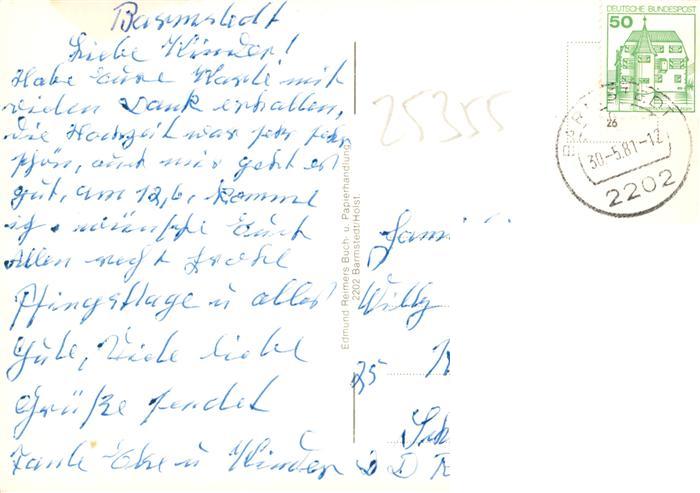 Barmstedt
Liebe Kinder!
Habe Eure Karte mit
vielen Dank erhalten,
die Hochzeit war sehr sehr
schön, auch mir geht es
gut, am 12,6, komme
ich wünsche Euch
Allen recht frohe
Pfingsttage u alles
Gute, Viele liebe
Grüße sendet
Tante Else u Kinder
Edmund Reimers Buch- u. Papierhandlung
2202 Barmstedt/Holst.
25355
DEUTSCHE BUNDESPOST
50
BARMSTEDT
26
30.-5.81-12
2202
Fami
Willy
75
Sch